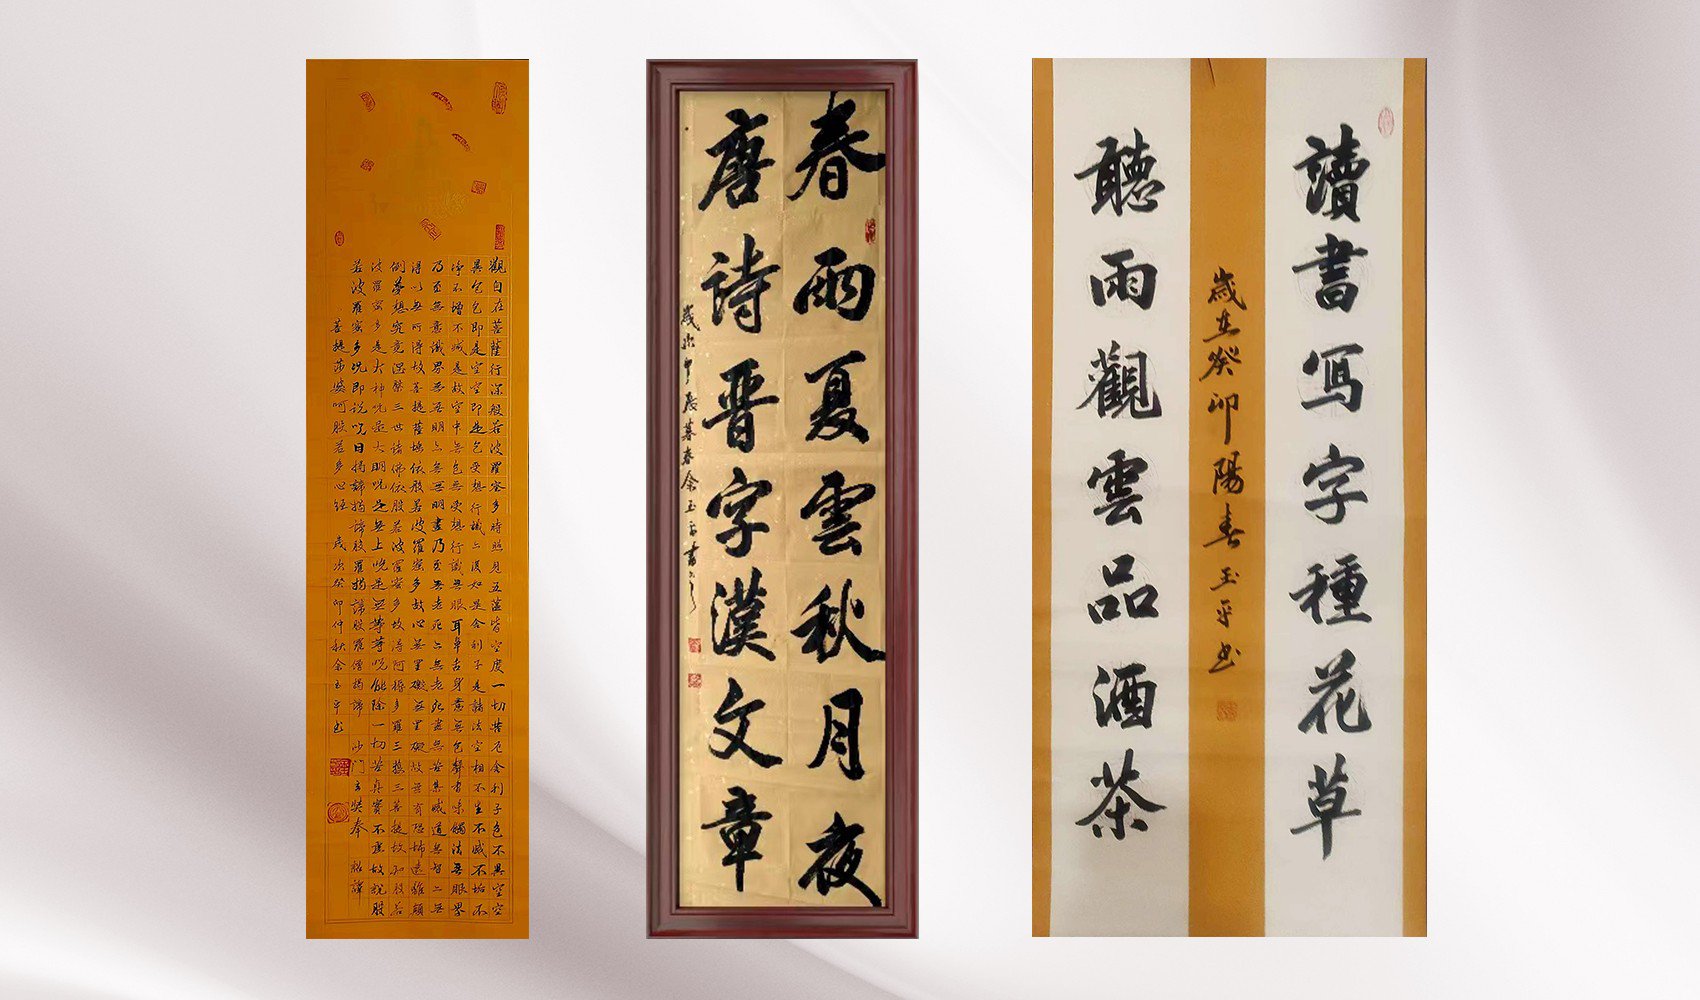 觀自在菩薩行深般若波羅蜜多時照見五蘊皆空度一切苦厄舍利子色不異空空
異色色即是空空即是色受想行識亦復如是舍利子是諸法空相不生不滅不垢不
淨不增不減是故空中無色無受想行識無眼耳鼻舌身意無色聲香味觸法無眼界
乃至無意識界無無明亦無無明盡乃至無老死亦無老死盡無苦集滅道無智亦無
得以無所得故菩提薩埵依般若波羅蜜多故心無罣礙無罣礙故無有恐怖遠離顛
倒夢想究竟涅槃三世諸佛依般若波羅蜜多故得阿耨多羅三藐三菩提故知般若
波羅蜜多是大神咒是大明咒是無上咒是無等等咒能除一切苦真實不虛故說般
若波羅蜜多咒即說咒曰揭諦揭諦般羅揭諦般羅僧揭諦 沙門玄奘奉 詔譯
菩提莎婆呵般若多心經 歲次癸卯仲秋余玉平书
春雨夏雲秋月夜
唐詩晋字漢文章
歲次甲辰暮春余玉平書
讀書写字種花草
聽雨觀雲品酒茶
歲在癸卯陽春玉平书